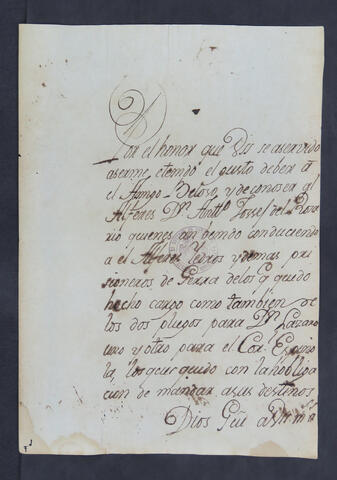 Por el honor que Vs se aservido
aserme, etenido el gusto deber â
el Amigo Beloso, y de conoser al
Alferes Dn Antto Jossef del Rosa
rio quienes an benido conduciendo
a el Alferes Pedros y demas pri
sioneros de Gerra delos q quedo
hecho cargo como también de
los dos pliegos para Dn Lazaro
uno y otro para el Cor. Espino
la, los qe quedo con la hobliga
cion de mandar asus destinos
Dios Gue a Vs ms as